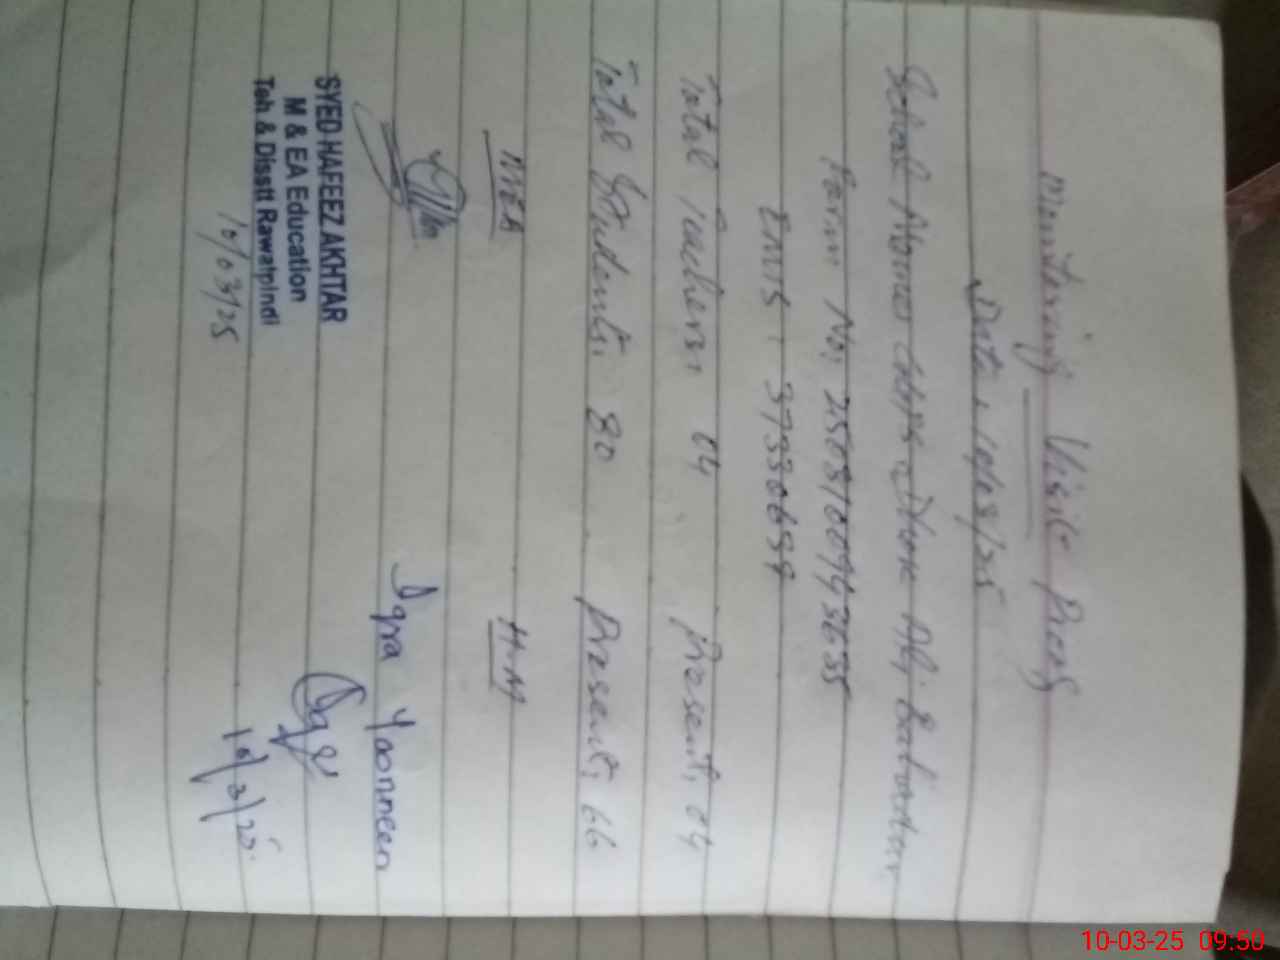 Monitoring Visit Proof
Date: 10/03/25
School Name: GGPS Dhok Ali
Form No: 
EMIS: 37330699
Total Teachers: 04 Present: 04
Total Students: 80 Present: 66
MEA H.M
Iqra Yasmeen
SYED HAFEEZ AKHTAR
M & EA Education
Teh & Disstt Rawalpindi
10/03/25 10/3/25
10-03-25 09:50